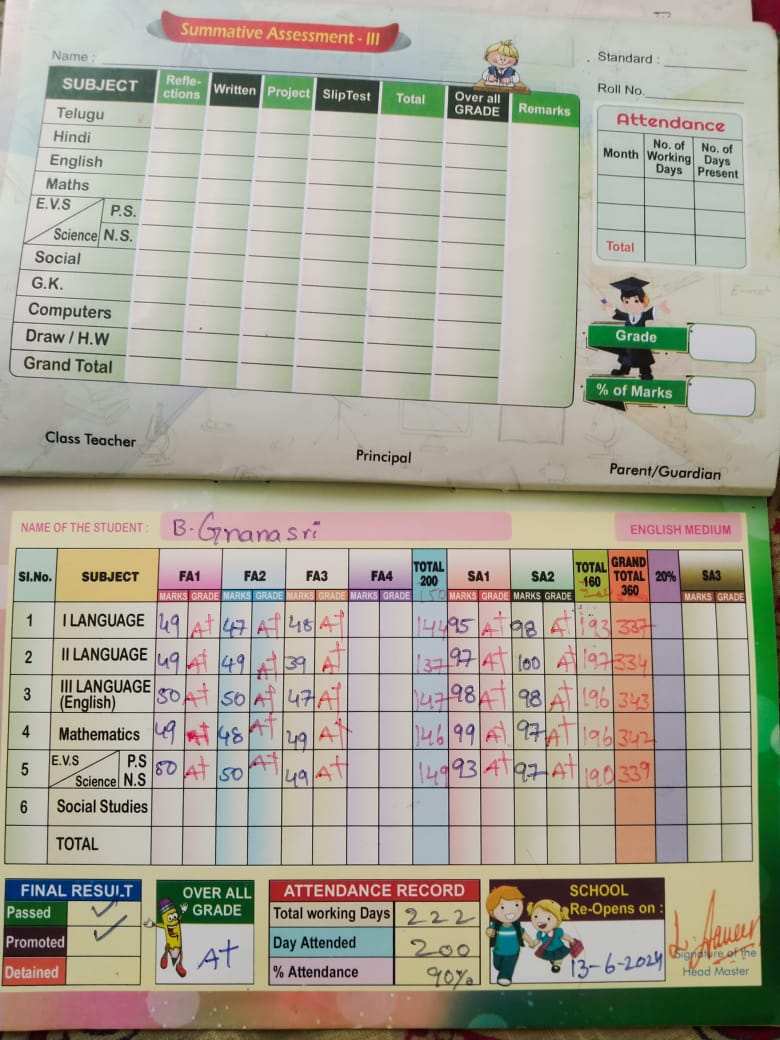 Summative Assessment - III
Name :
Standard :
Roll No.
SUBJECT Refle-ctions Written Project SlipTest Total Over all GRADE Remarks
Telugu
Hindi
English
Maths
E.V.S P.S.
Science N.S.
Social
G.K.
Computers
Draw / H.W
Grand Total
Attendance
Month No. of Working Days No. of Days Present
Total
Grade
% of Marks
Class Teacher
Principal
Parent/Guardian
NAME OF THE STUDENT : B. Gnanasri ENGLISH MEDIUM
Sl.No. SUBJECT FA1 FA2 FA3 FA4 TOTAL 200 SA1 SA2 TOTAL 160 GRAND TOTAL 360 20% SA3
150
MARKS GRADE MARKS GRADE MARKS GRADE MARKS GRADE MARKS GRADE MARKS GRADE MARKS GRADE
1 I LANGUAGE 49 A+ 47 A+ 48 A+ 144 95 A+ 98 A+ 193 337
2 II LANGUAGE 49 A+ 49 A+ 39 A+ 137 97 A+ 100 A+ 197 334
3 III LANGUAGE (English) 50 A+ 50 A+ 47 A+ 147 98 A+ 98 A+ 196 343
4 Mathematics 49 A+ 48 A+ 49 A+ 146 99 A+ 97 A+ 196 342
5 E.V.S P.S Science N.S 50 A+ 50 A+ 49 A+ 149 93 A+ 97 A+ 190 339
6 Social Studies
TOTAL
FINAL RESULT
Passed ✓
Promoted ✓
Detained
OVER ALL GRADE
A+
ATTENDANCE RECORD
Total working Days 222
Day Attended 200
% Attendance 90%
SCHOOL
Re-Opens on :
13-6-2024
Signature of the
Head Master